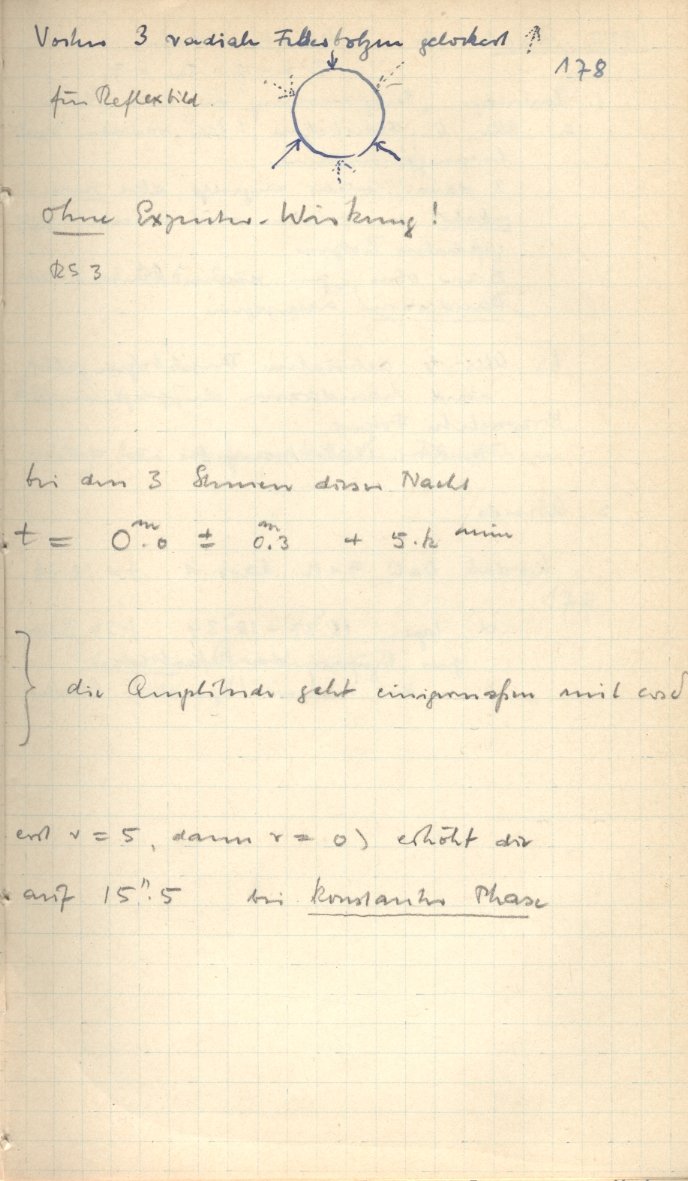 Vorher 3 radiale Federbolzen gelockert
178
für Reflexbild.
ohne Exzenter-Wirkung!
RS 3
bei den 3 Sternen dieser Nacht
t = 0ᵐ.0 ± 0ᵐ.3 + 5.k min
} die Amplitude geht einigermaßen mit cos δ
erst r = 5, dann r = 0) erhöht die
auf 15".5 bei konstanter Phase